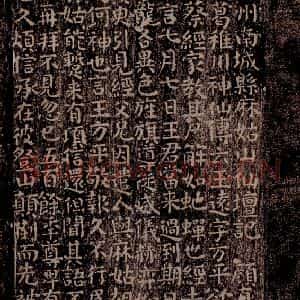 州南城縣麻姑山仙壇記 顏
葛稚川神仙傳云王遠字方平
蔡經家教其尸解如蛇蟬也經
言七月七日王君當來過到期
龍各異色旌旗導從威儀赫弈
臾引見經父兄因遣人與麻姑
何神也言王方平敬報久不行民
姑能蹔來有頃信還但聞其語不
再拜不見忽已五百餘年尊卑有
久煩信承在彼登山顛倒而先被